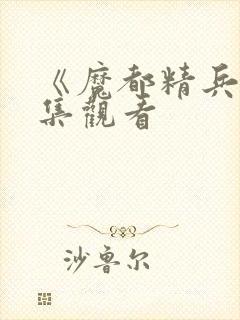 《魔都精兵
集觀看
沙鲁尔